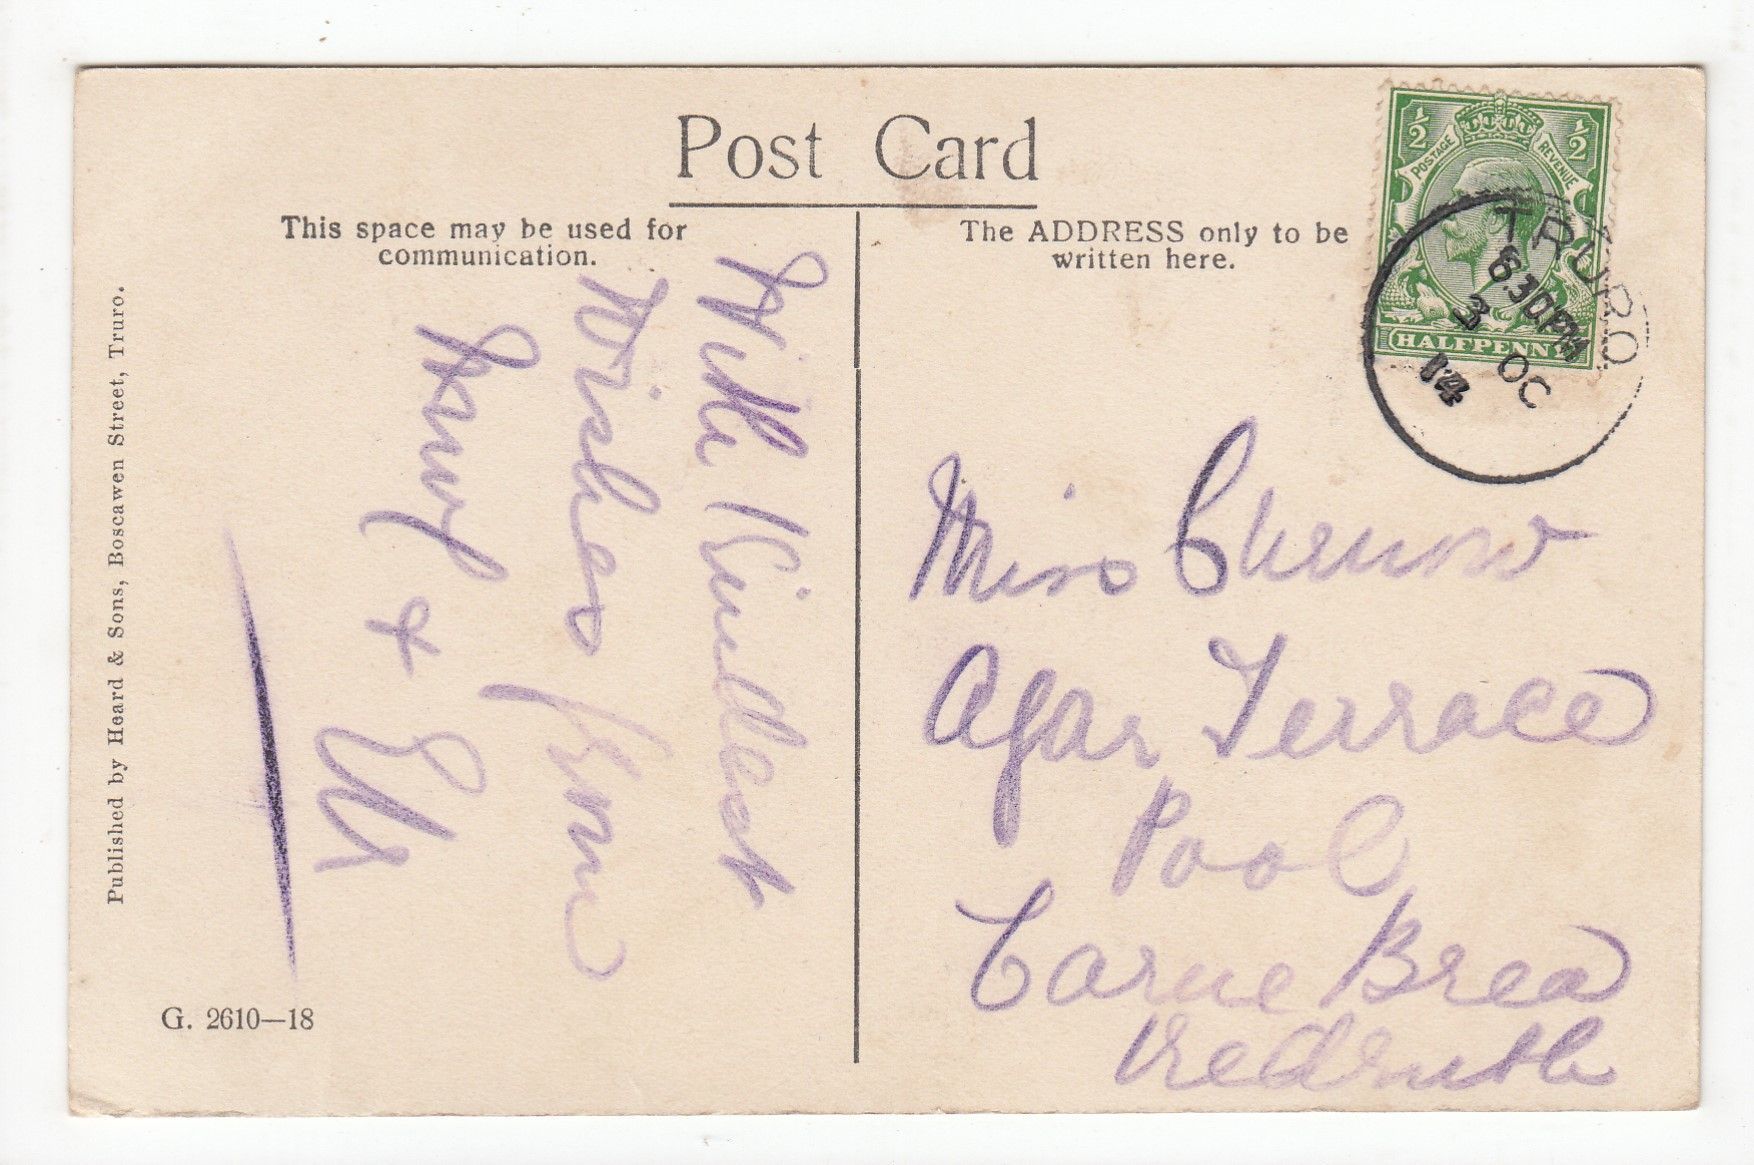 Post Card
This space may be used for
communication.
The ADDRESS only to be
written here.
Published by Heard & Sons, Boscawen Street, Truro.
G. 2610—18
With Kindest
Wishes from
&
Miss Chenow
Agar Terrace
Pool
Carne Brea
Redruth
½ ½
POSTAGE REVENUE
HALFPENNY
TRURO
8.30PM
3 OC
14